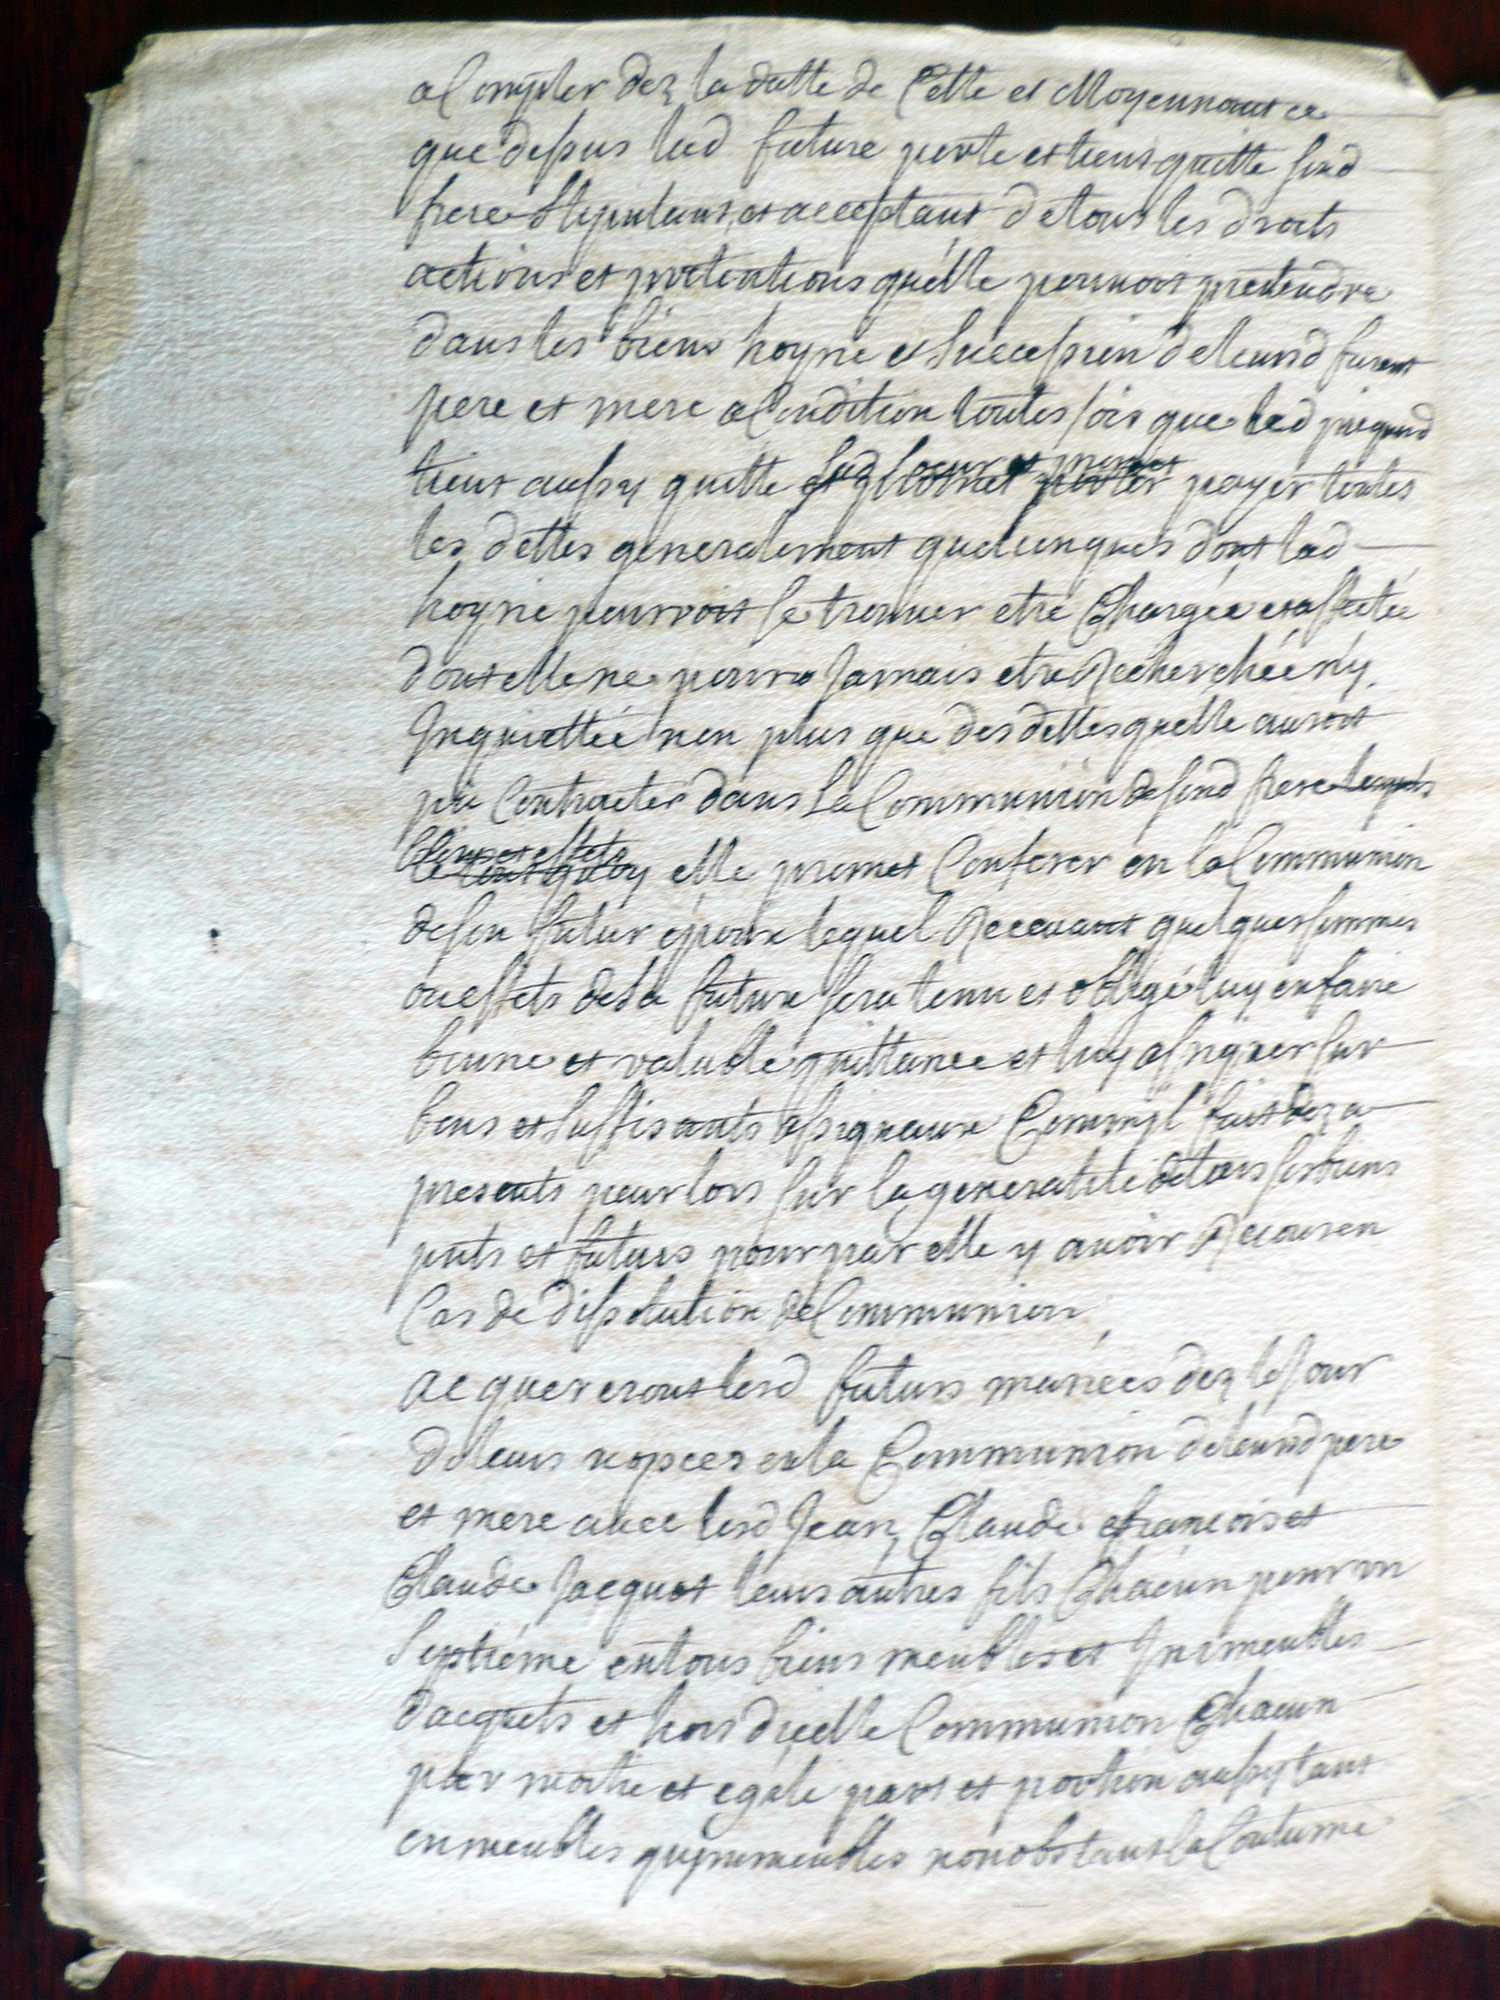 a Compter dez la datte de Cette et Moyennant ce
que dessus lad future perte et tient quitte sond
frere stipulant et acceptant de tous les droits
actions et quelle pouvoit pretendre
dans les biens hoyrie et succession de leursd furent
pere et mere a Condition toutes fois que led
tient aussy quitte lad soeur et promet payer toutes
les dettes generalement quelcunques dont lad
hoyrie pourroit se trouver etre Chargée et affectée
dont elle ne pourra Jamais etre Recherchée ny
Inquiettée non plus que des dettes quelle auroit
pu Contracter dans la Communion de sond frere
biens et effets elle promet Conferer en la Communion
de son futur epoux lequel Recevant quelques sommes
ou effets de la future sera tenu et obligé luy en faire
bonne et valable quittance et luy assigner sur
bons et suffisants assignaux Comm'jl fait dez a
presents pour lors sur la generalité de tous ses biens
pnts et futurs pour par elle y avoir Recours en
Cas de dissolution de Communion
acquereront lesd futurs mariées dez le Jour
de leurs nopces en la Communion de leursd pere
et mere avec lesd Jean, Claude françois et
Claude Jacquot leurs autres fils Chacun pour un
septiéme en tous biens meubles et Immeubles
d'acquets et hors d'icelle Communion Chacun
par moitié et egale part et portion aussy tant
en meubles qu'jmmeubles nonobstant la Coutume